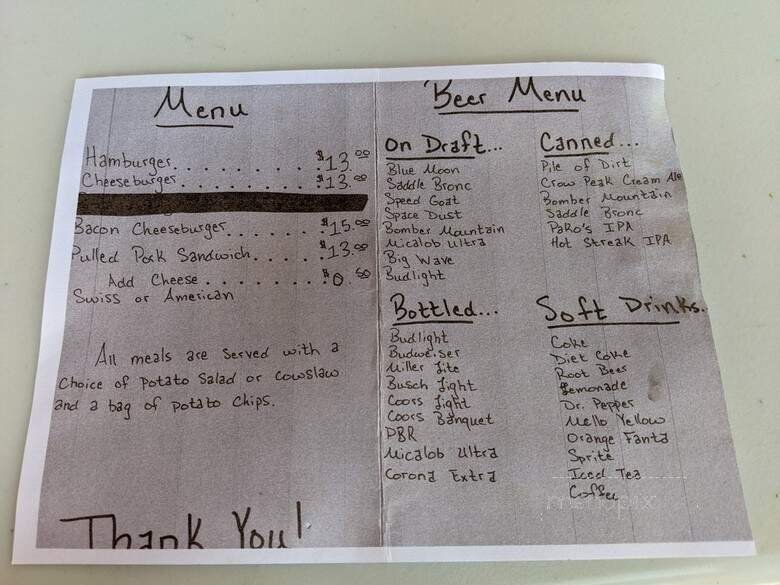 Menu
Hamburger. . . . . . . . . . . $13.00
Cheeseburger . . . . . . . . . $13.00
Bacon Cheeseburger. . . . . . $15.00
Pulled Pork Sandwich. . . . . $13.00
Add Cheese . . . . . . . . $0.50
Swiss or American
All meals are served with a
Choice of potato Salad or Cowslaw
and a bag of potato chips.
Thank You!
Beer Menu
On Draft...
Blue Moon
Saddle Bronc
Speed Goat
Space Dust
Bomber Mountain
Micalob Ultra
Big Wave
Budlight
Canned...
Pile of Dirt
Crow Peak Cream Ale
Bomber Mountain
Saddle Bronc
Pako's IPA
Hot Streak IPA
Bottled...
Budlight
Budweiser
Miller Lite
Busch Light
Coors Light
Coors Banquet
PBR
Micalob Ultra
Corona Extra
Soft Drinks.
Coke
Diet Coke
Root Beer
Lemonade
Dr. Pepper
Mello Yellow
Orange Fanta
Sprite
Iced Tea
Coffee
menupix